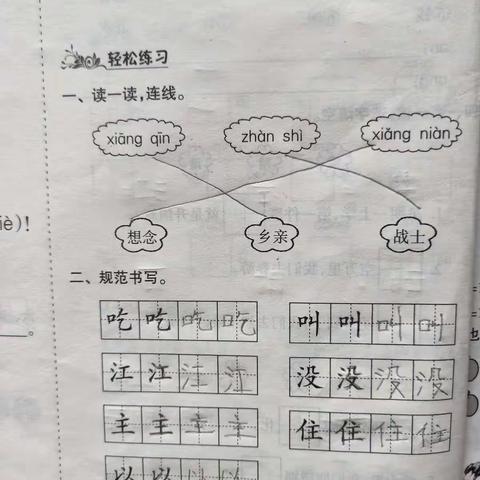 轻松练习
一、读一读,连线。
xiāng qīn zhàn shì xiǎng niàn
想念 乡亲 战士
iè)!
二、规范书写。
吃 吃 吃 吃 叫 叫 叫 叫
。
江 江 江 江 没 没 没 没
主 主 主 主 住 住 住 住
以 以 以 以